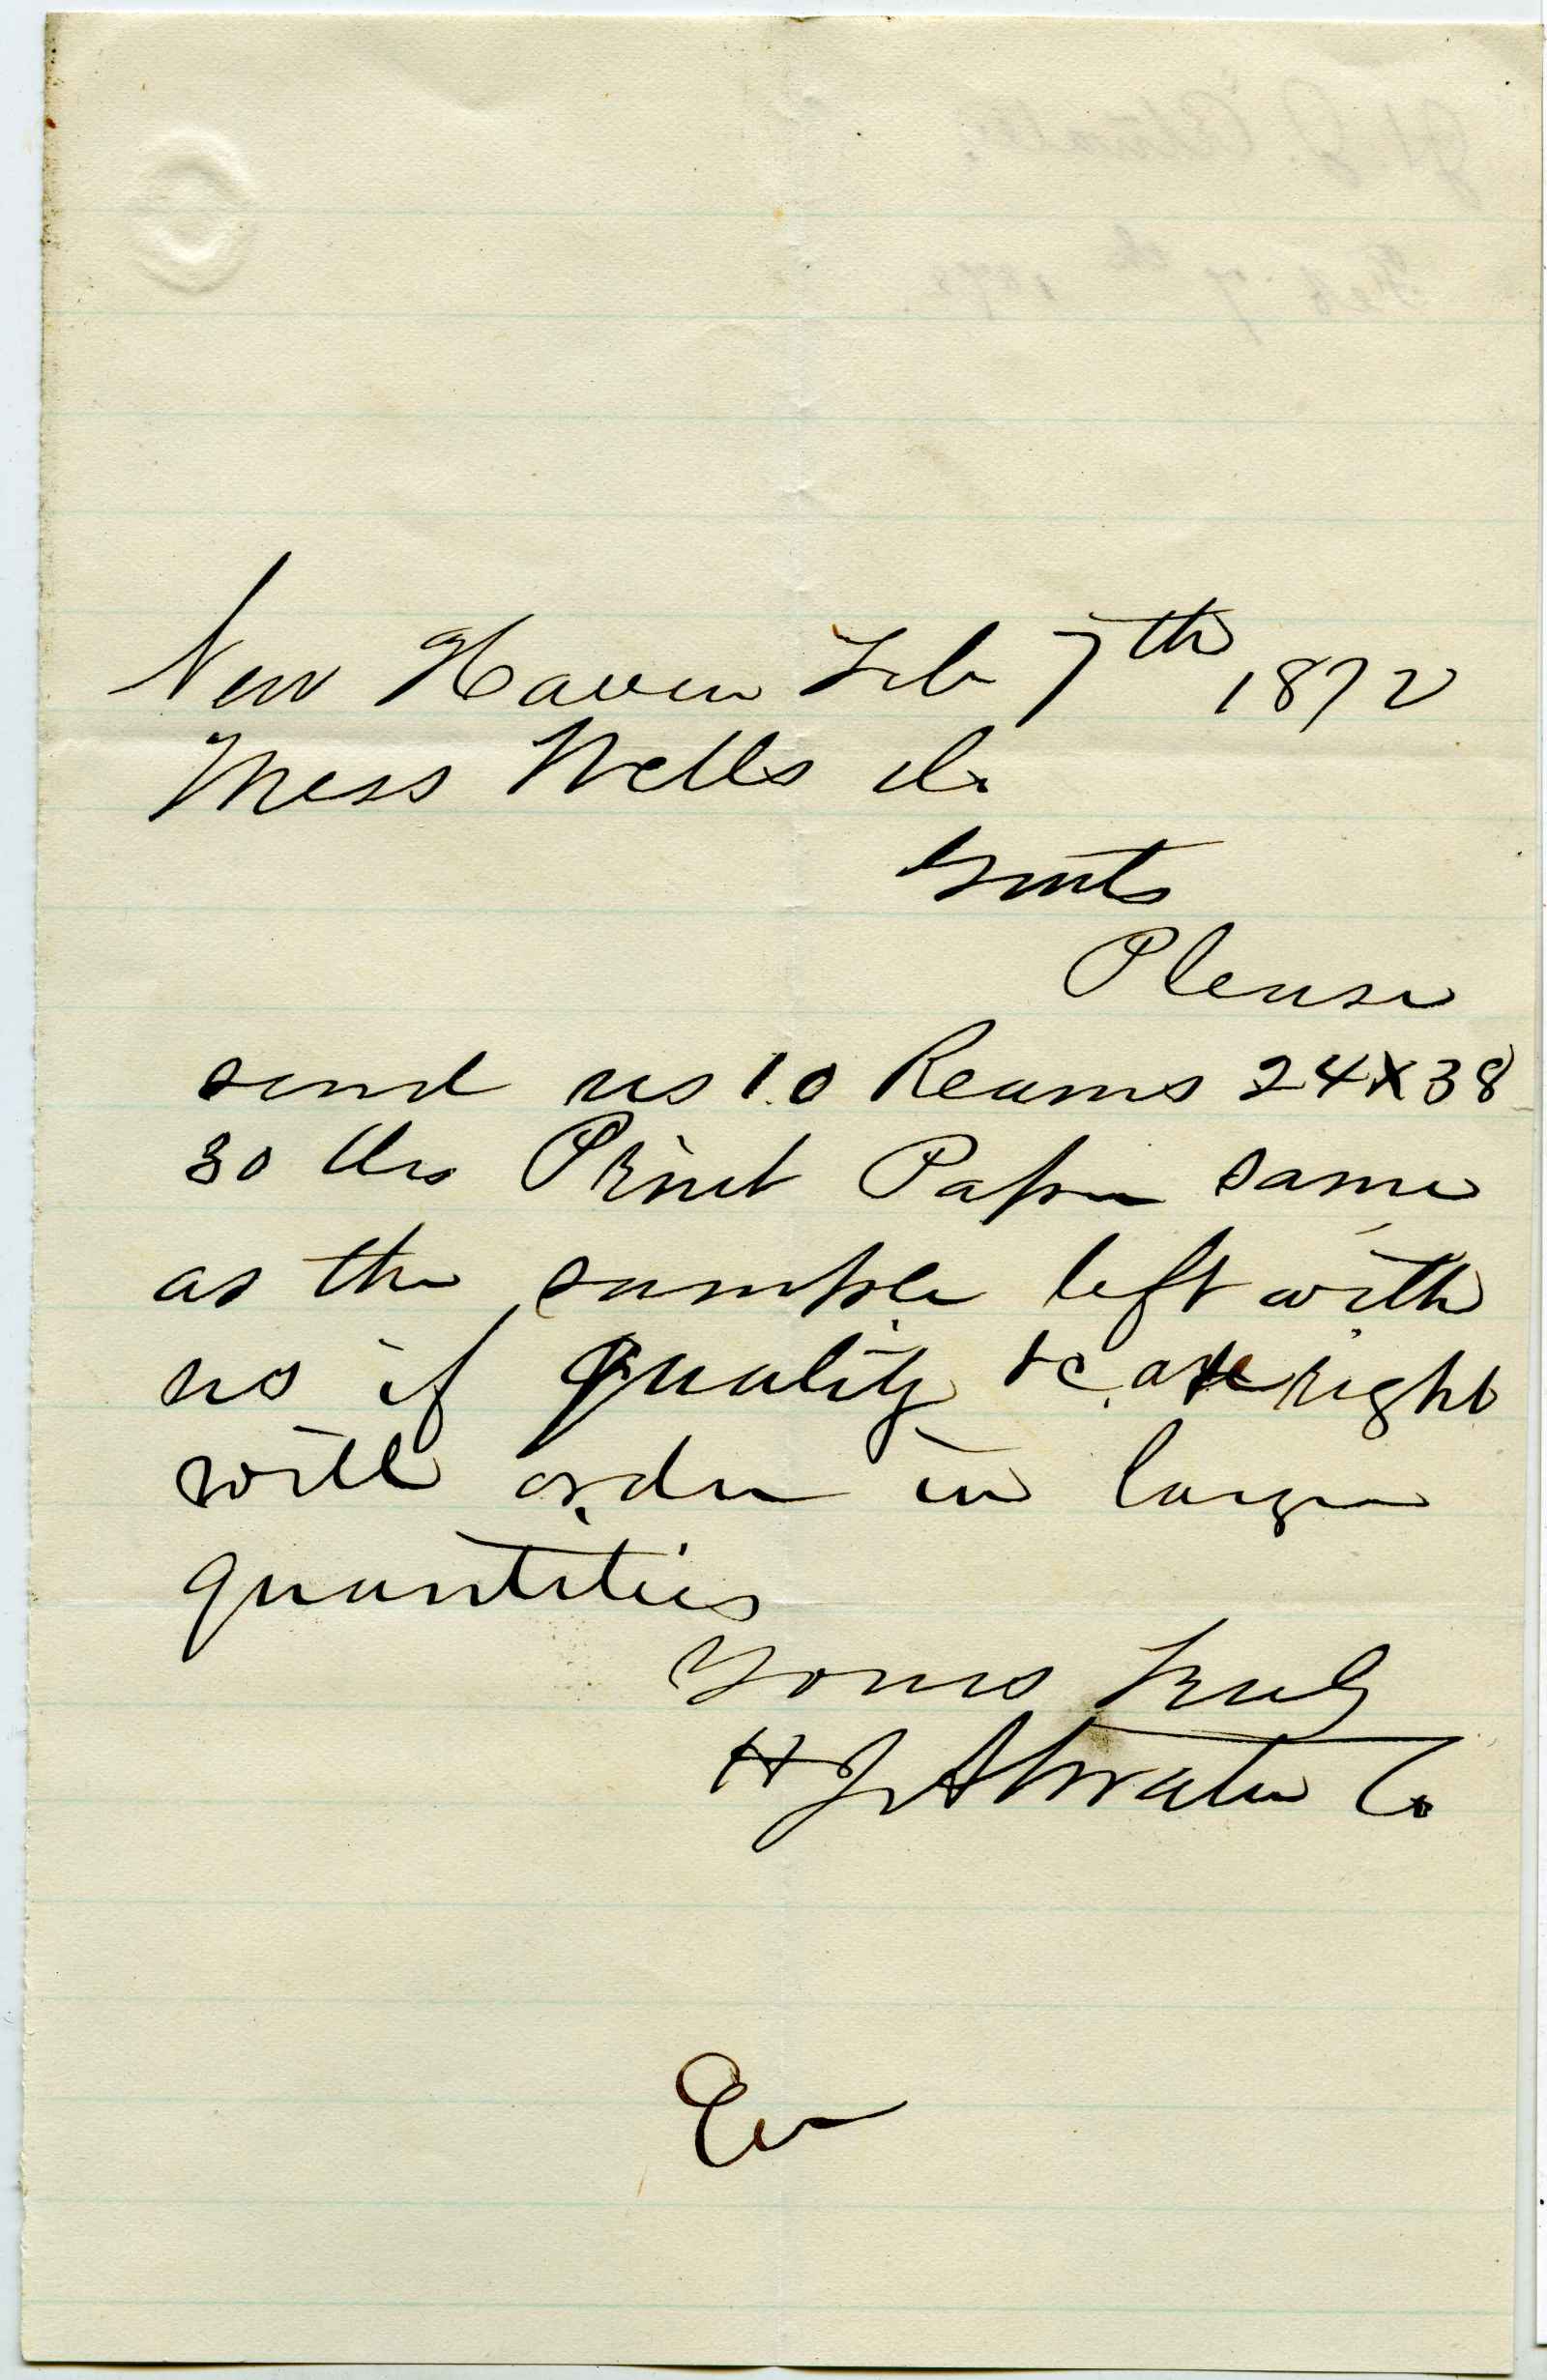 New Haven Feb 7th 1872
Mess Wells &c
Gents
Please
send us 10 Reams 24x38
30 lbs Print Paper same
as the sample left with
us if quality &c are right
will order in larger
quantities
Yours Truly
H J Atwater Co